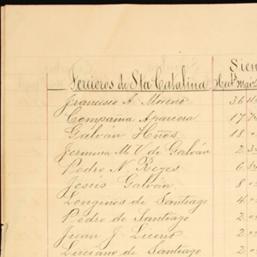 Siem
Terceros de Sta Catalina Hect.s
Francisco A. Moreno 36
Compañia Aparcera 17
Galván Hños. 18
Jermina M. V. de Galván 2
Pedro N. Reyes 6
Jesús Galván 8
Longinos de Santiago 4
Pedro de Santiago 2
Juan J. 2
Luciano de Santiago 2